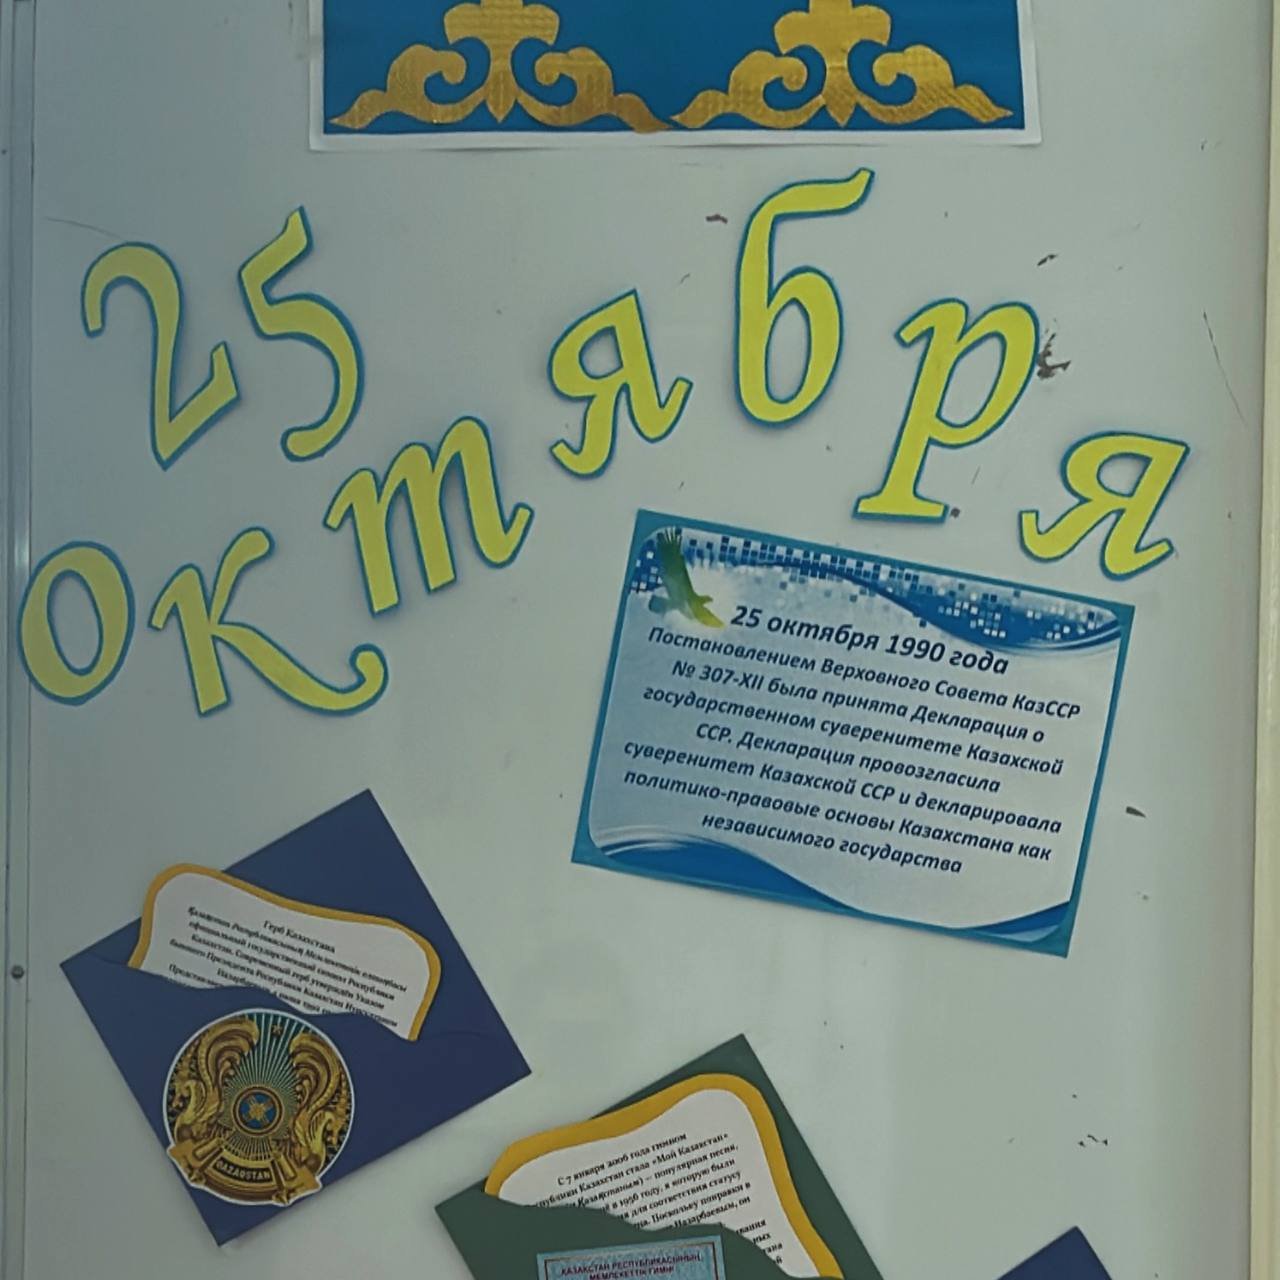 25
октября
25 октября 1990 года
Постановлением Верховного Совета КазССР
№ 307-XII была принята Декларация о
государственном суверенитете Казахской
ССР. Декларация провозгласила
суверенитет Казахской ССР и декларировала
политико-правовые основы Казахстана как
независимого государства
Герб Казахстана
Қазақстан Республикасының Мемлекеттік елтаңбасы
официальный государственный символ Республики
Казахстан. Современный герб утверждён Указом
бывшего Президента Республики Казахстан Нурсултаном
QAZAQSTAN
С 7 января 2006 года гимном
Казахстан стала «Мой Казахстан»
– популярная песня,
в 1956 году, в которую были
для соответствия статусу
Поскольку поправки в
Назарбаевым, он
ҚАЗАҚСТАН РЕСПУБЛИКАСЫНЫҢ
МЕМЛЕКЕТТІК ГИМНІ